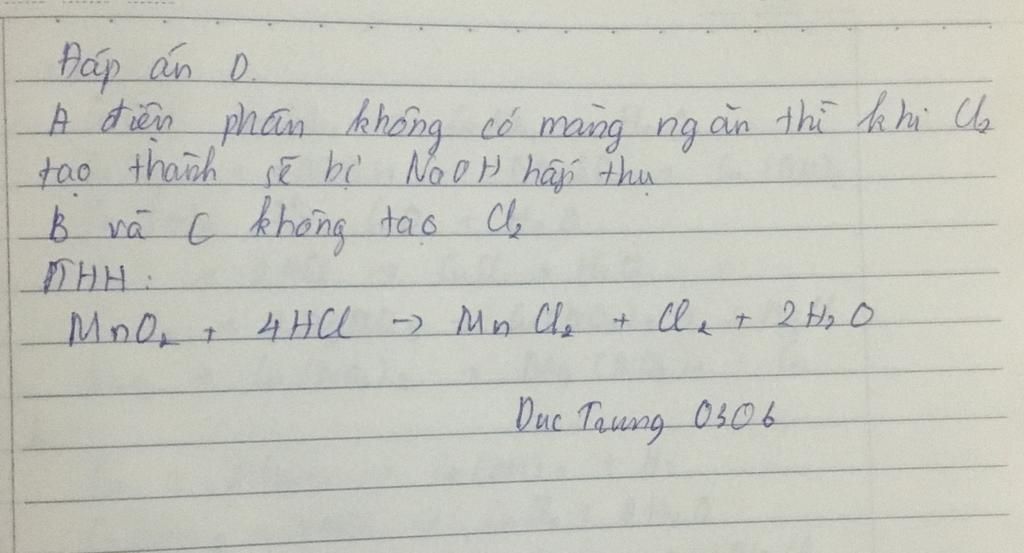 Đáp án D.
A điện phân không có màng ngăn thì khí Cl₂
tạo thành sẽ bị NaOH hấp thụ
B và C không tạo Cl₂
PTHH:
MnO₂ + 4HCl → MnCl₂ + Cl₂ + 2H₂O
Duc Trung 0306